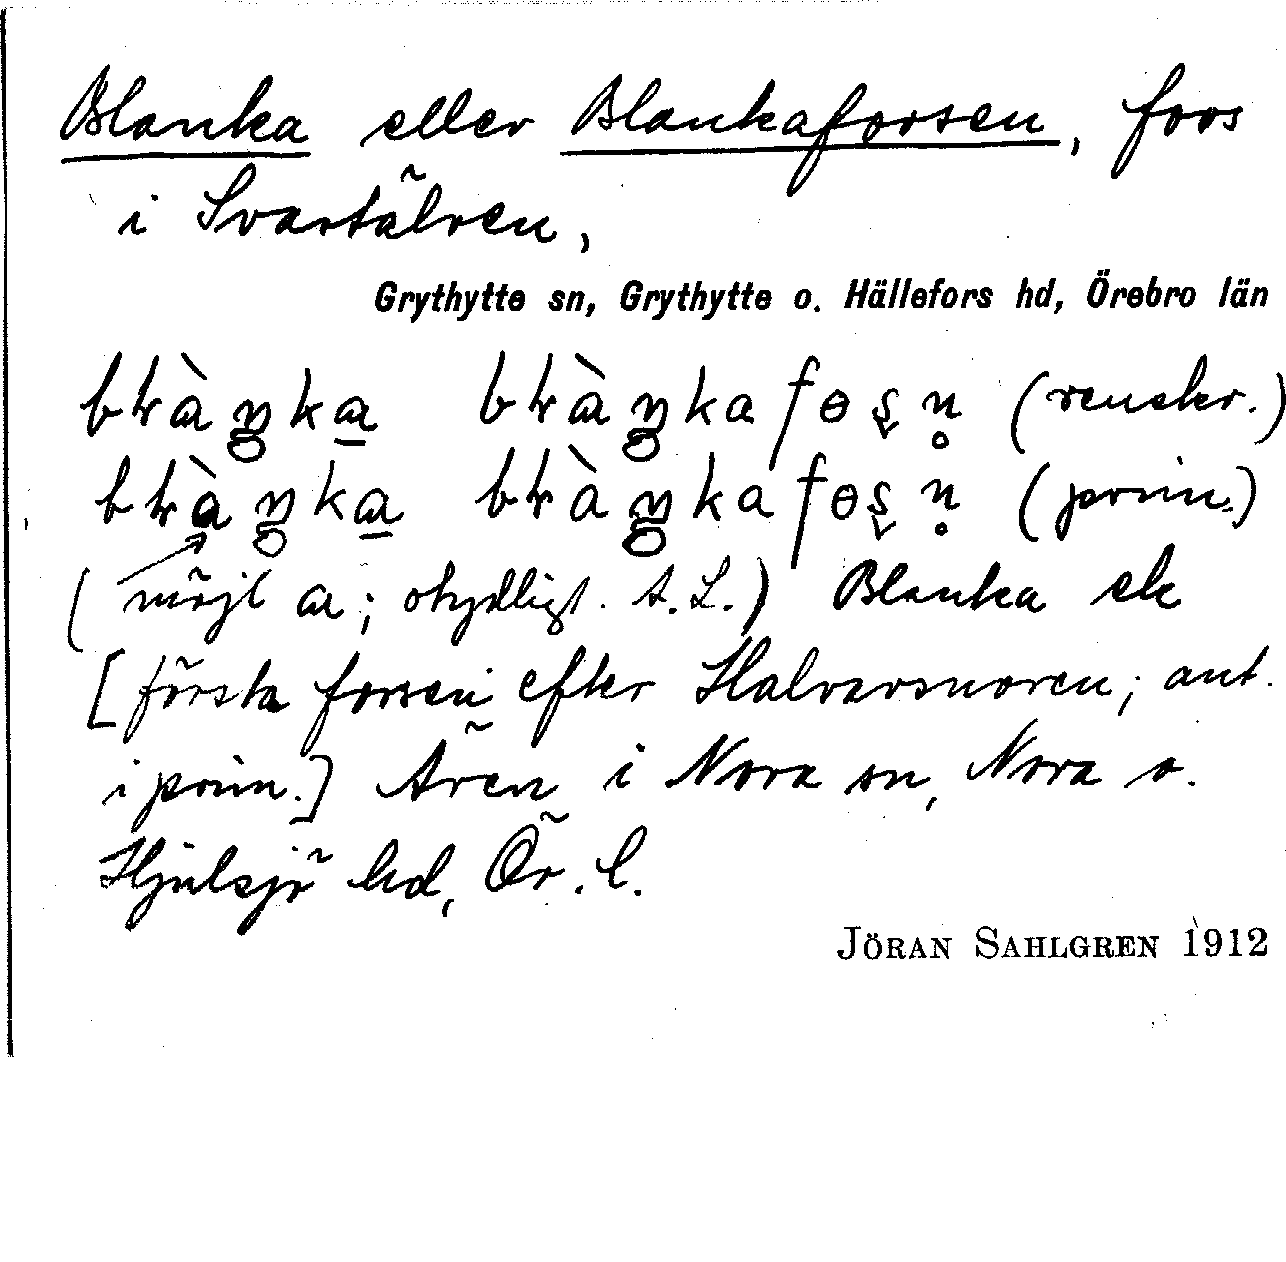 Blanka eller Blankaforsen, fors
i Svartälven,
Grythytte sn, Grythytte o. Hällefors hd, Örebro län
(renskr.)
(prim.)
(möjl a; otydligt. A. L.) Blanka
[första forsen efter Halvarsnoren; ant.
i prim.] Ären i Nora sn, Nora o.
Hjulsjö hd, Ör. l.
JÖRAN SAHLGREN 1912